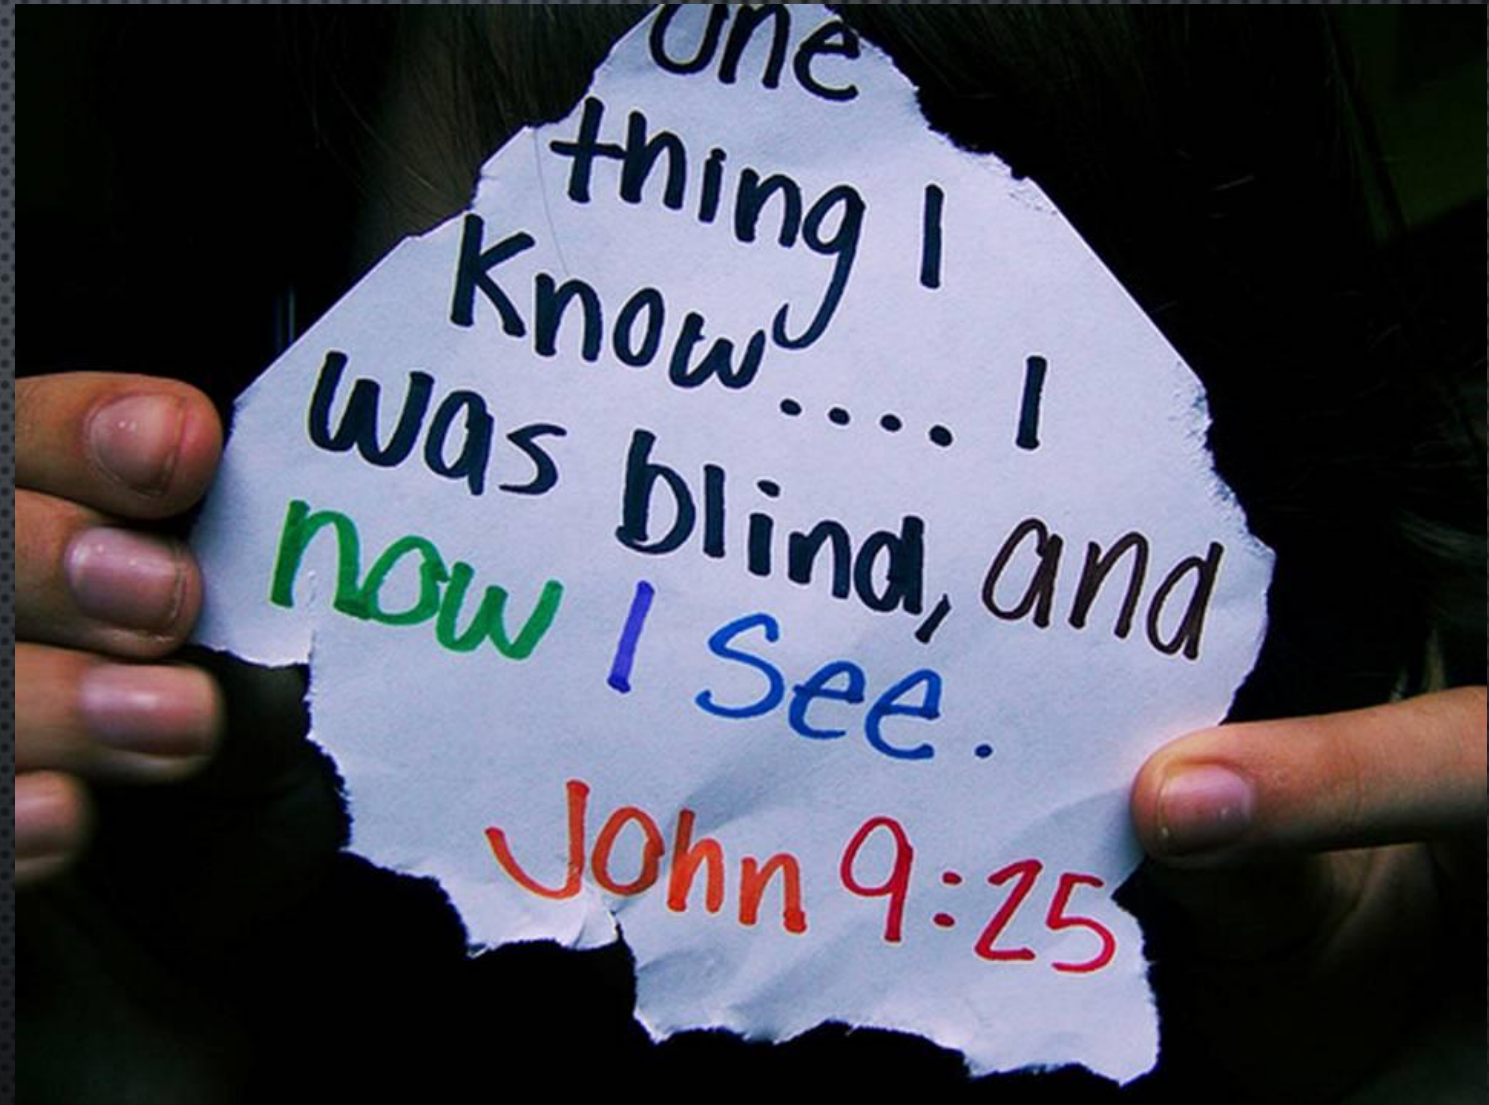 One
thing I
Know.... I
was blind, and
now I See.
John 9:25